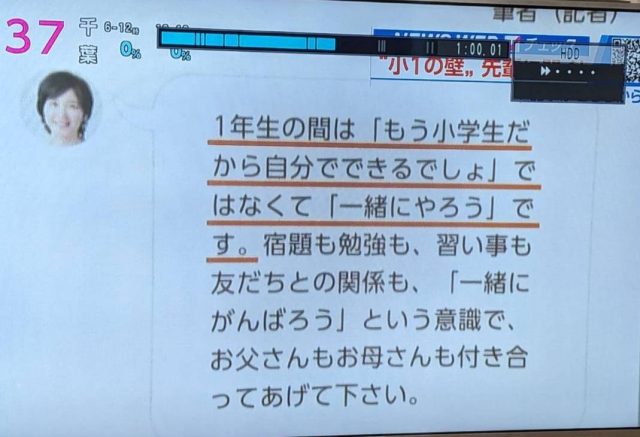 筆者（記者）
37
千葉
6-12時
0%
0%
1:00.01
HDD
"小1の壁„先輩
から
1年生の間は「もう小学生だ
から自分でできるでしょ」で
はなくて「一緒にやろう」で
す。宿題も勉強も、習い事も
友だちとの関係も、「一緒に
がんばろう」という意識で、
お父さんもお母さんも付き合
ってあげて下さい。